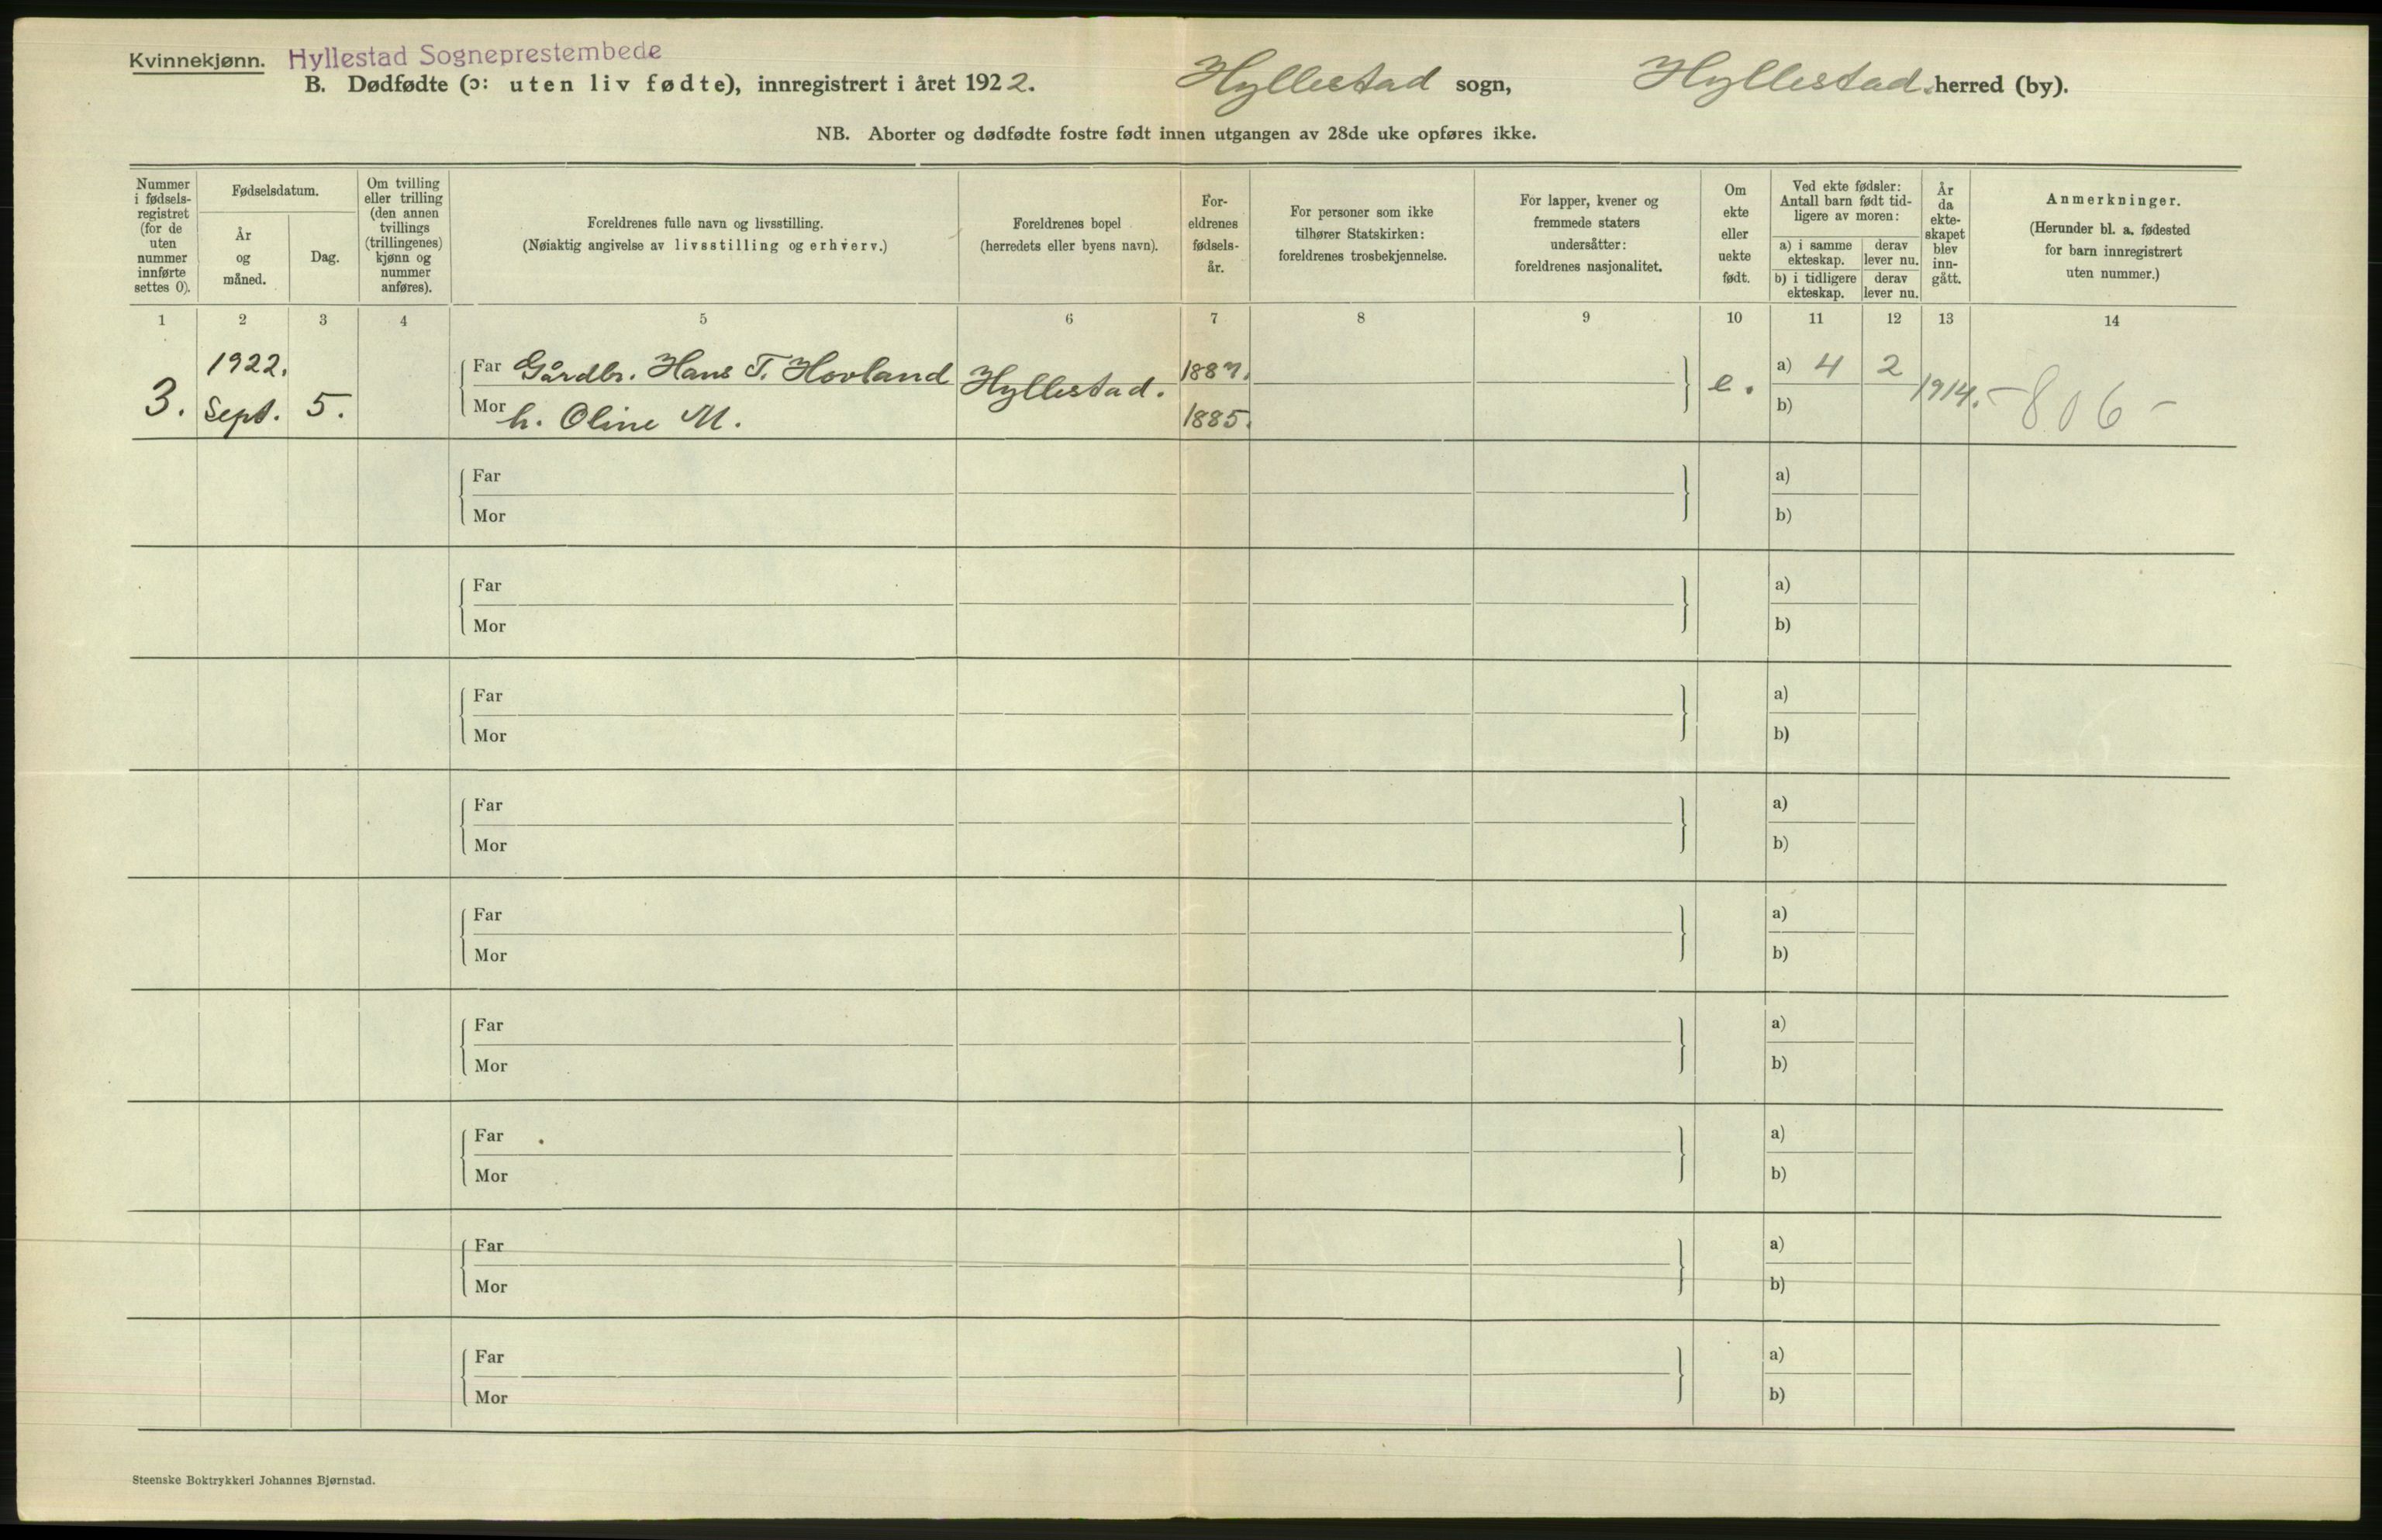 Kvinnekjønn. Hyllestad Sogneprestembede
B. Dødfødte (ɔ: uten liv fødte), innregistrert i året 1922. Hyllestad sogn, Hyllestad herred (by).
NB. Aborter og dødfødte fostre født innen utgangen av 28de uke opføres ikke.
Nummer i fødsels-registret (for de uten nummer innførte settes 0).
Fødselsdatum.
År og måned.
Dag.
Om tvilling eller trilling (den annen tvillings (trillingenes) kjønn og nummer anføres).
Foreldrenes fulle navn og livsstilling.
(Nøiaktig angivelse av livsstilling og erhverv.)
Foreldrenes bopel
(herredets eller byens navn).
For-eldrenes fødsels-år.
For personer som ikke tilhører Statskirken: foreldrenes trosbekjennelse.
For lapper, kvener og fremmede staters undersåtter: foreldrenes nasjonalitet.
Om ekte eller uekte født.
Ved ekte fødsler: Antall barn født tid-ligere av moren:
a) i samme ekteskap.
derav lever nu.
b) i tidligere ekteskap.
derav lever nu.
År da ekte-skapet blev inn-gått.
Anmerkninger.
(Herunder bl. a. fødested for barn innregistrert uten nummer.)
1 2 3 4 5 6 7 8 9 10 11 12 13 14
3. 1922. Sept. 5. Far Gårdbr. Hans T. Hovland Hyllestad. 1887. e. a) 4 2 1914. -806-
Mor h. Oline M. 1885. b)
Far a)
Mor b)
Far a)
Mor b)
Far a)
Mor b)
Far a)
Mor b)
Far a)
Mor b)
Far a)
Mor b)
Far a)
Mor b)
Far a)
Mor b)
Far a)
Mor b)
Steenske Boktrykkeri Johannes Bjørnstad.